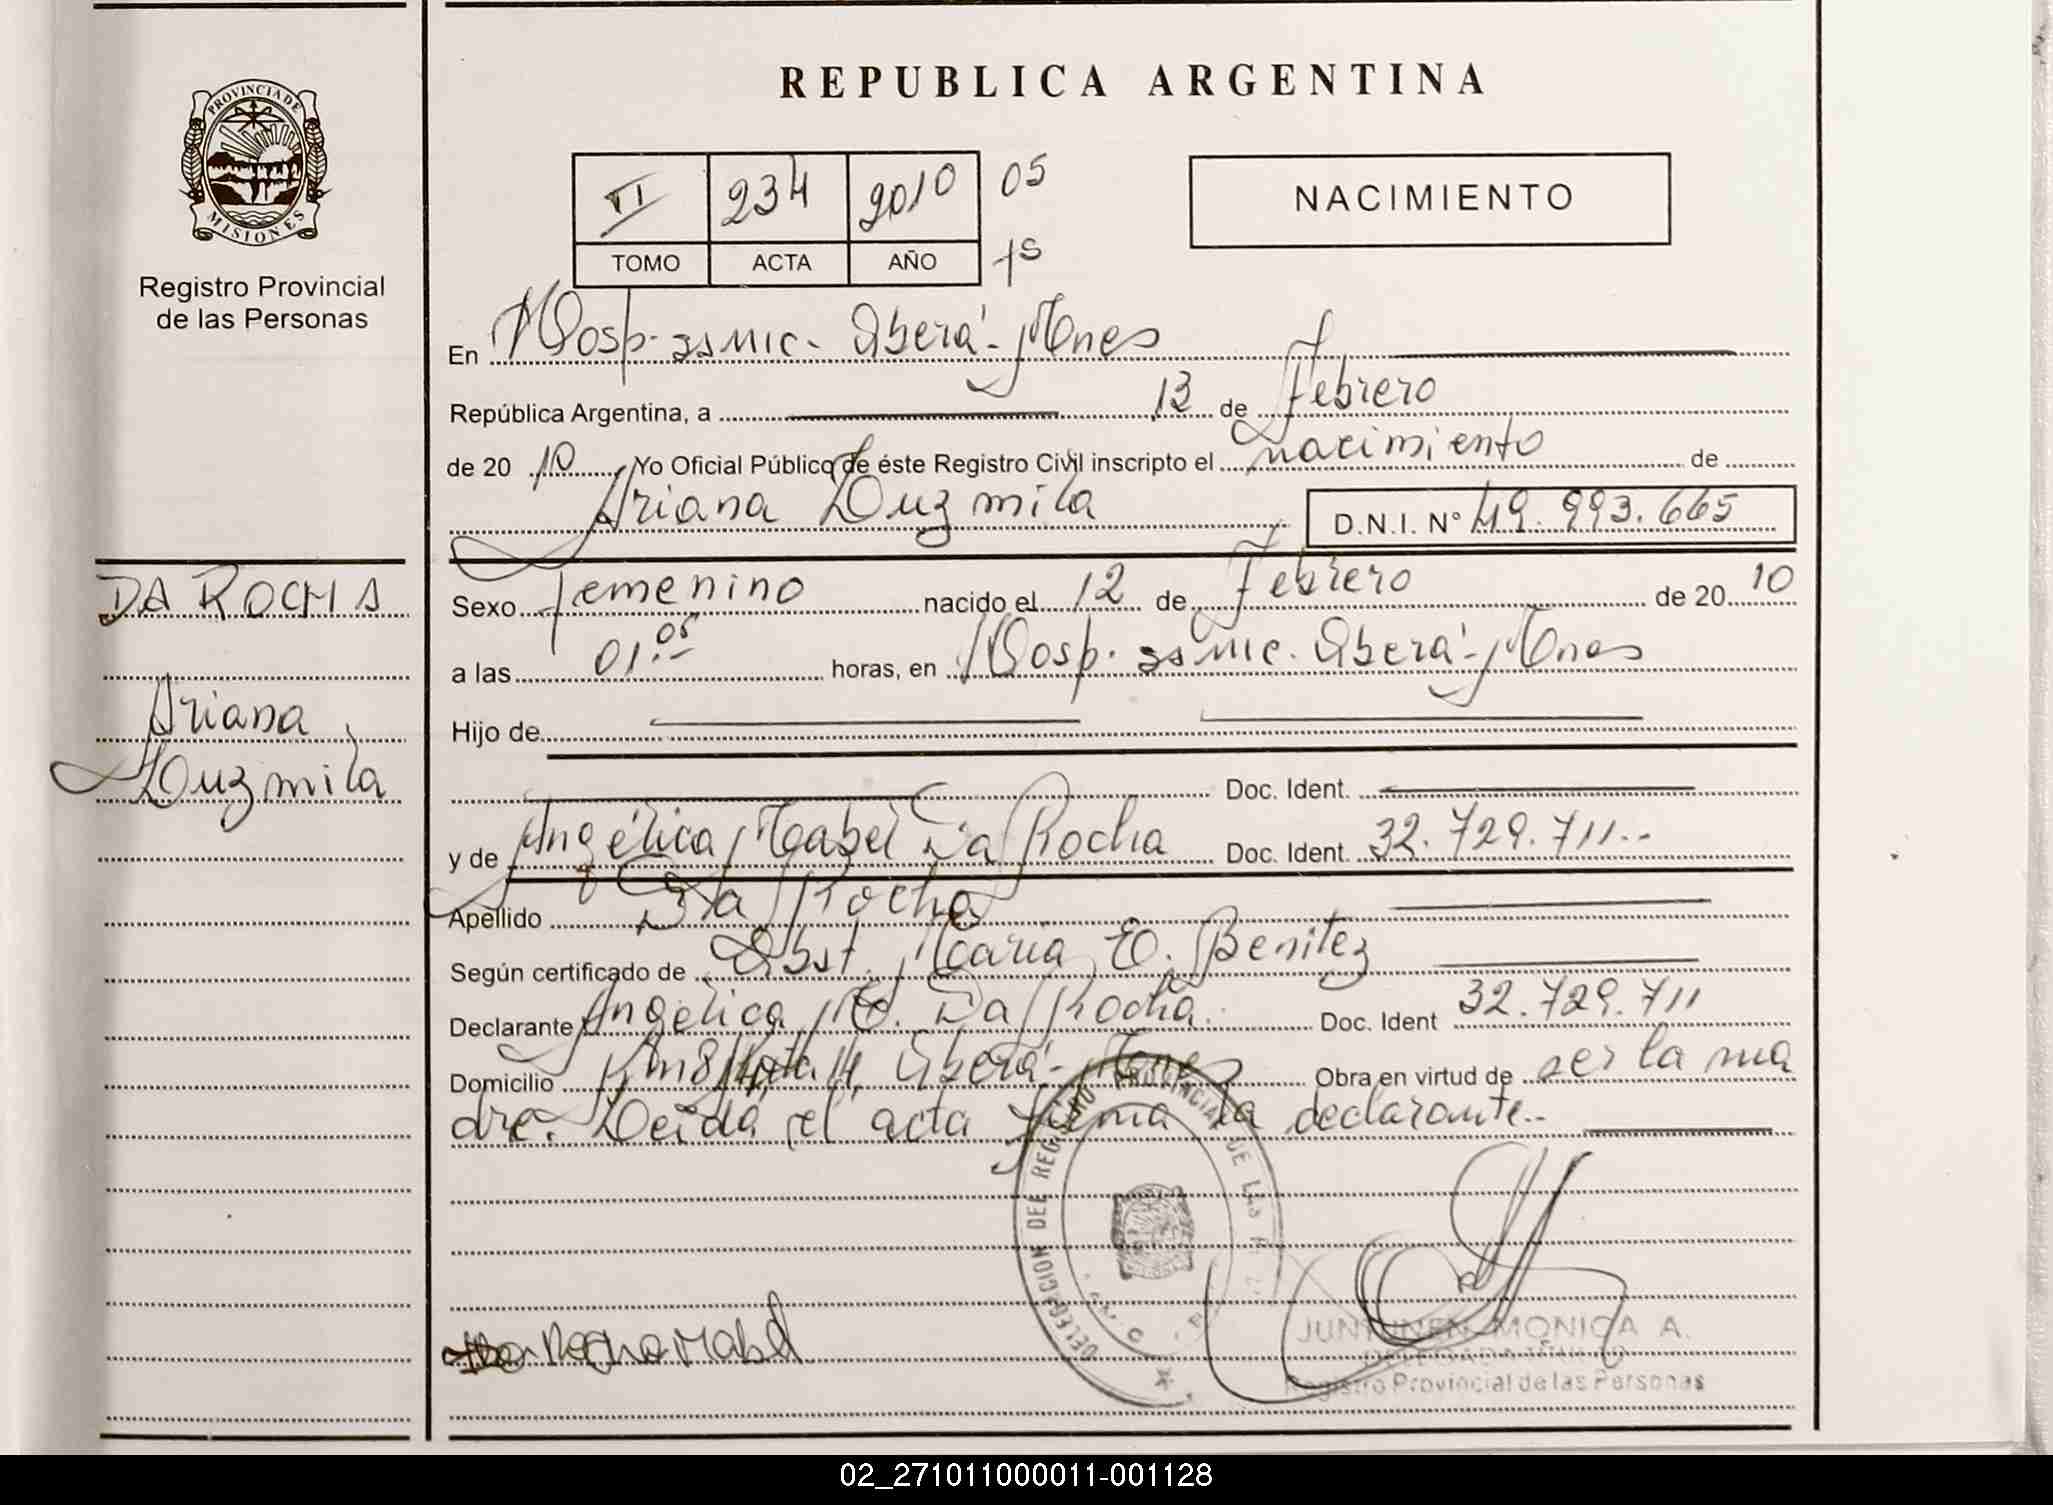 REPUBLICA ARGENTINA
PROVINCIA DE
MISIONES
Registro Provincial
de las Personas
VI 234 2010 05
TOMO ACTA AÑO 15
NACIMIENTO
En Hosp. Samic. Oberá - Mnes
República Argentina, a 13 de Febrero
de 20 10 Yo Oficial Público de éste Registro Civil inscripto el nacimiento de
Ariana Luzmila D.N.I. Nº 49.993.665
DA ROCHA
Ariana
Luzmila
Sexo femenino nacido el 12 de Febrero de 20 10
a las 01.05 horas, en Hosp. Samic. Oberá - Mnes
Hijo de
Doc. Ident.
y de Angélica Mabel Da Rocha Doc. Ident. 32.729.711.-
Apellido Da Rocha
Según certificado de Obst. Maria E. Benitez
Declarante Angélica M. Da Rocha. Doc. Ident 32.729.711
Domicilio Km 8 Oberá - Mnes Obra en virtud de ser la ma
dre. Leida el acta firma la declarante.-
DELEGACION DEL REGISTRO PROVINCIAL DE LAS
Da Rocha Mabel
JUNTUNEN MONICA A.
Registro Provincial de las Personas
02_271011000011-001128